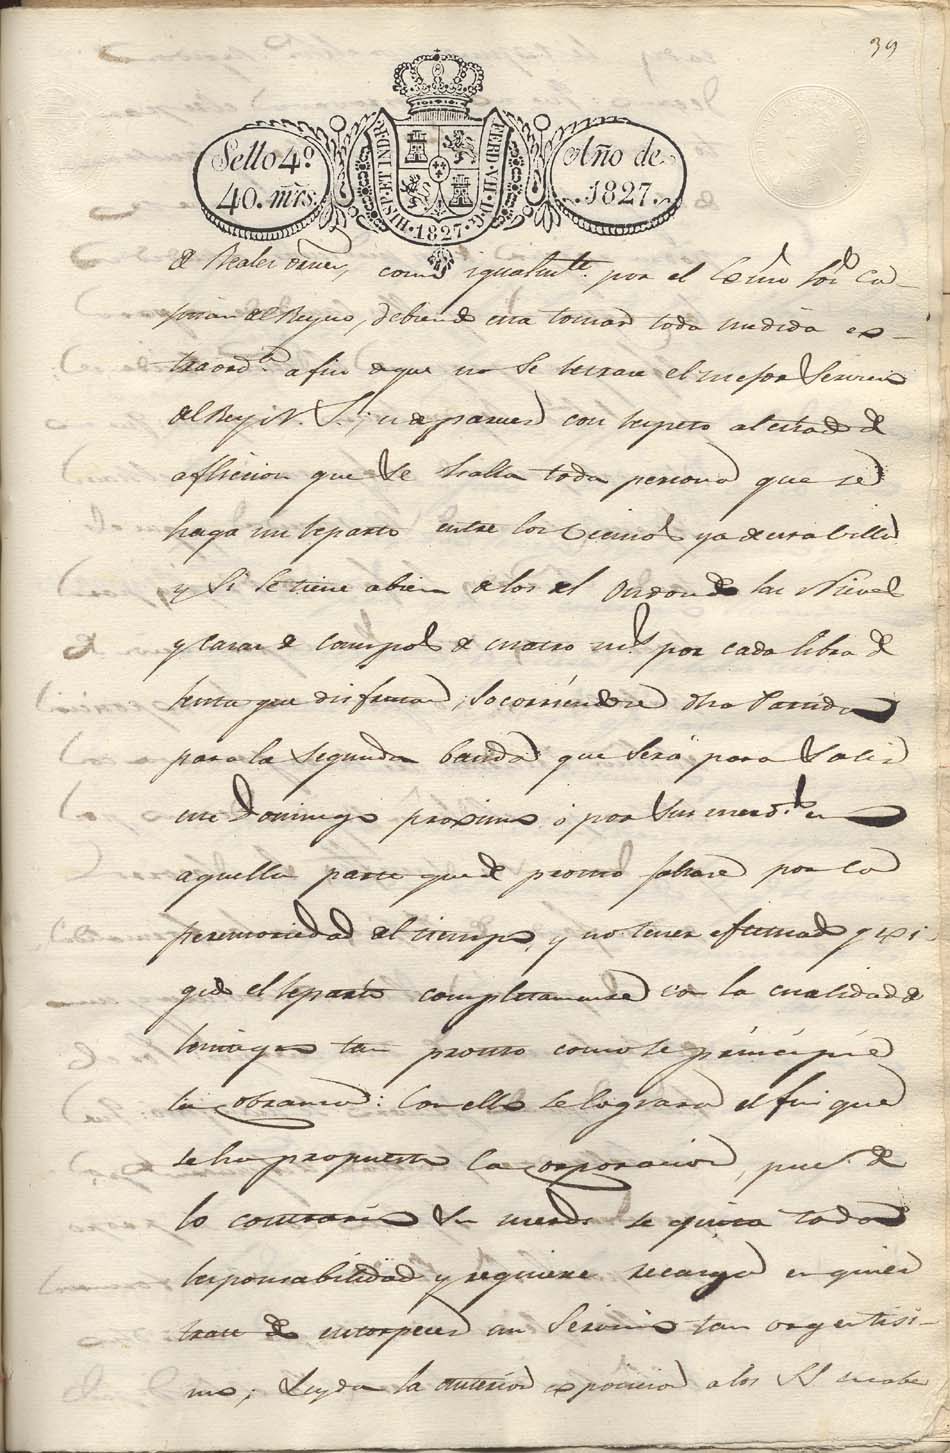 39
Sello 4º
40. mrs.
HISP. ET IND. R.
FERD. VII. D. G.
1827
Año de
1827.
de Reales ordenes, como igualmte. por el Exmo Sor. Ca-
pitan del Reyno, debiendo esta tomar toda medida ex-
traord.ª a fin de que no se retrase el mejor Servicio
del Rey N. S.; es de parecer con respeto al estado de
afliccion que se halla toda persona que se
haga un reparto entre los vecinos ya de esta villa
y si se tiene a bien de los del
y casas de campo de cuatro mrs por cada libra de
renta que disfrutan, socorriendose dha Partida
para la segunda banda que será para salir
este Domingo proximo ó por sus mrds. en
aquella parte que de pronto faltare por la
peremtoriedad del tiempo, y no tener efectuado y exi-
gido el reparto completamente con la cualidad de
reintegro tan pronto como se principie
la cobranza: Con ello se lograra el fin que
se ha propuesto la corporacion, pues de
lo contrario Su merd. se quita toda
responsabilidad y requiere recayga en quien
trate de entorpecer un Servicio tan urgentisi-
mo; Leyda la anterior exposicion a los SS.